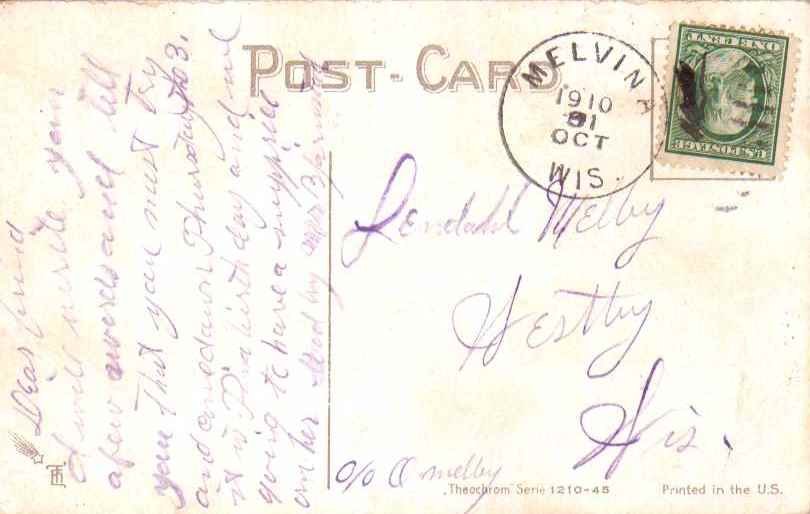 POST-CARD
MELVINA
1910
OCT
WIS.
U.S. POSTAGE
ONE CENT
Dear frind
I will write you
a few words and tell
you that you must try
and come down Thursday the 3.
it is birth day and we
going to have a
on her good by
Melby
Westby
Wis.
c/o O melby
„Theochrom" Serie 1210-45
Printed in the U.S.